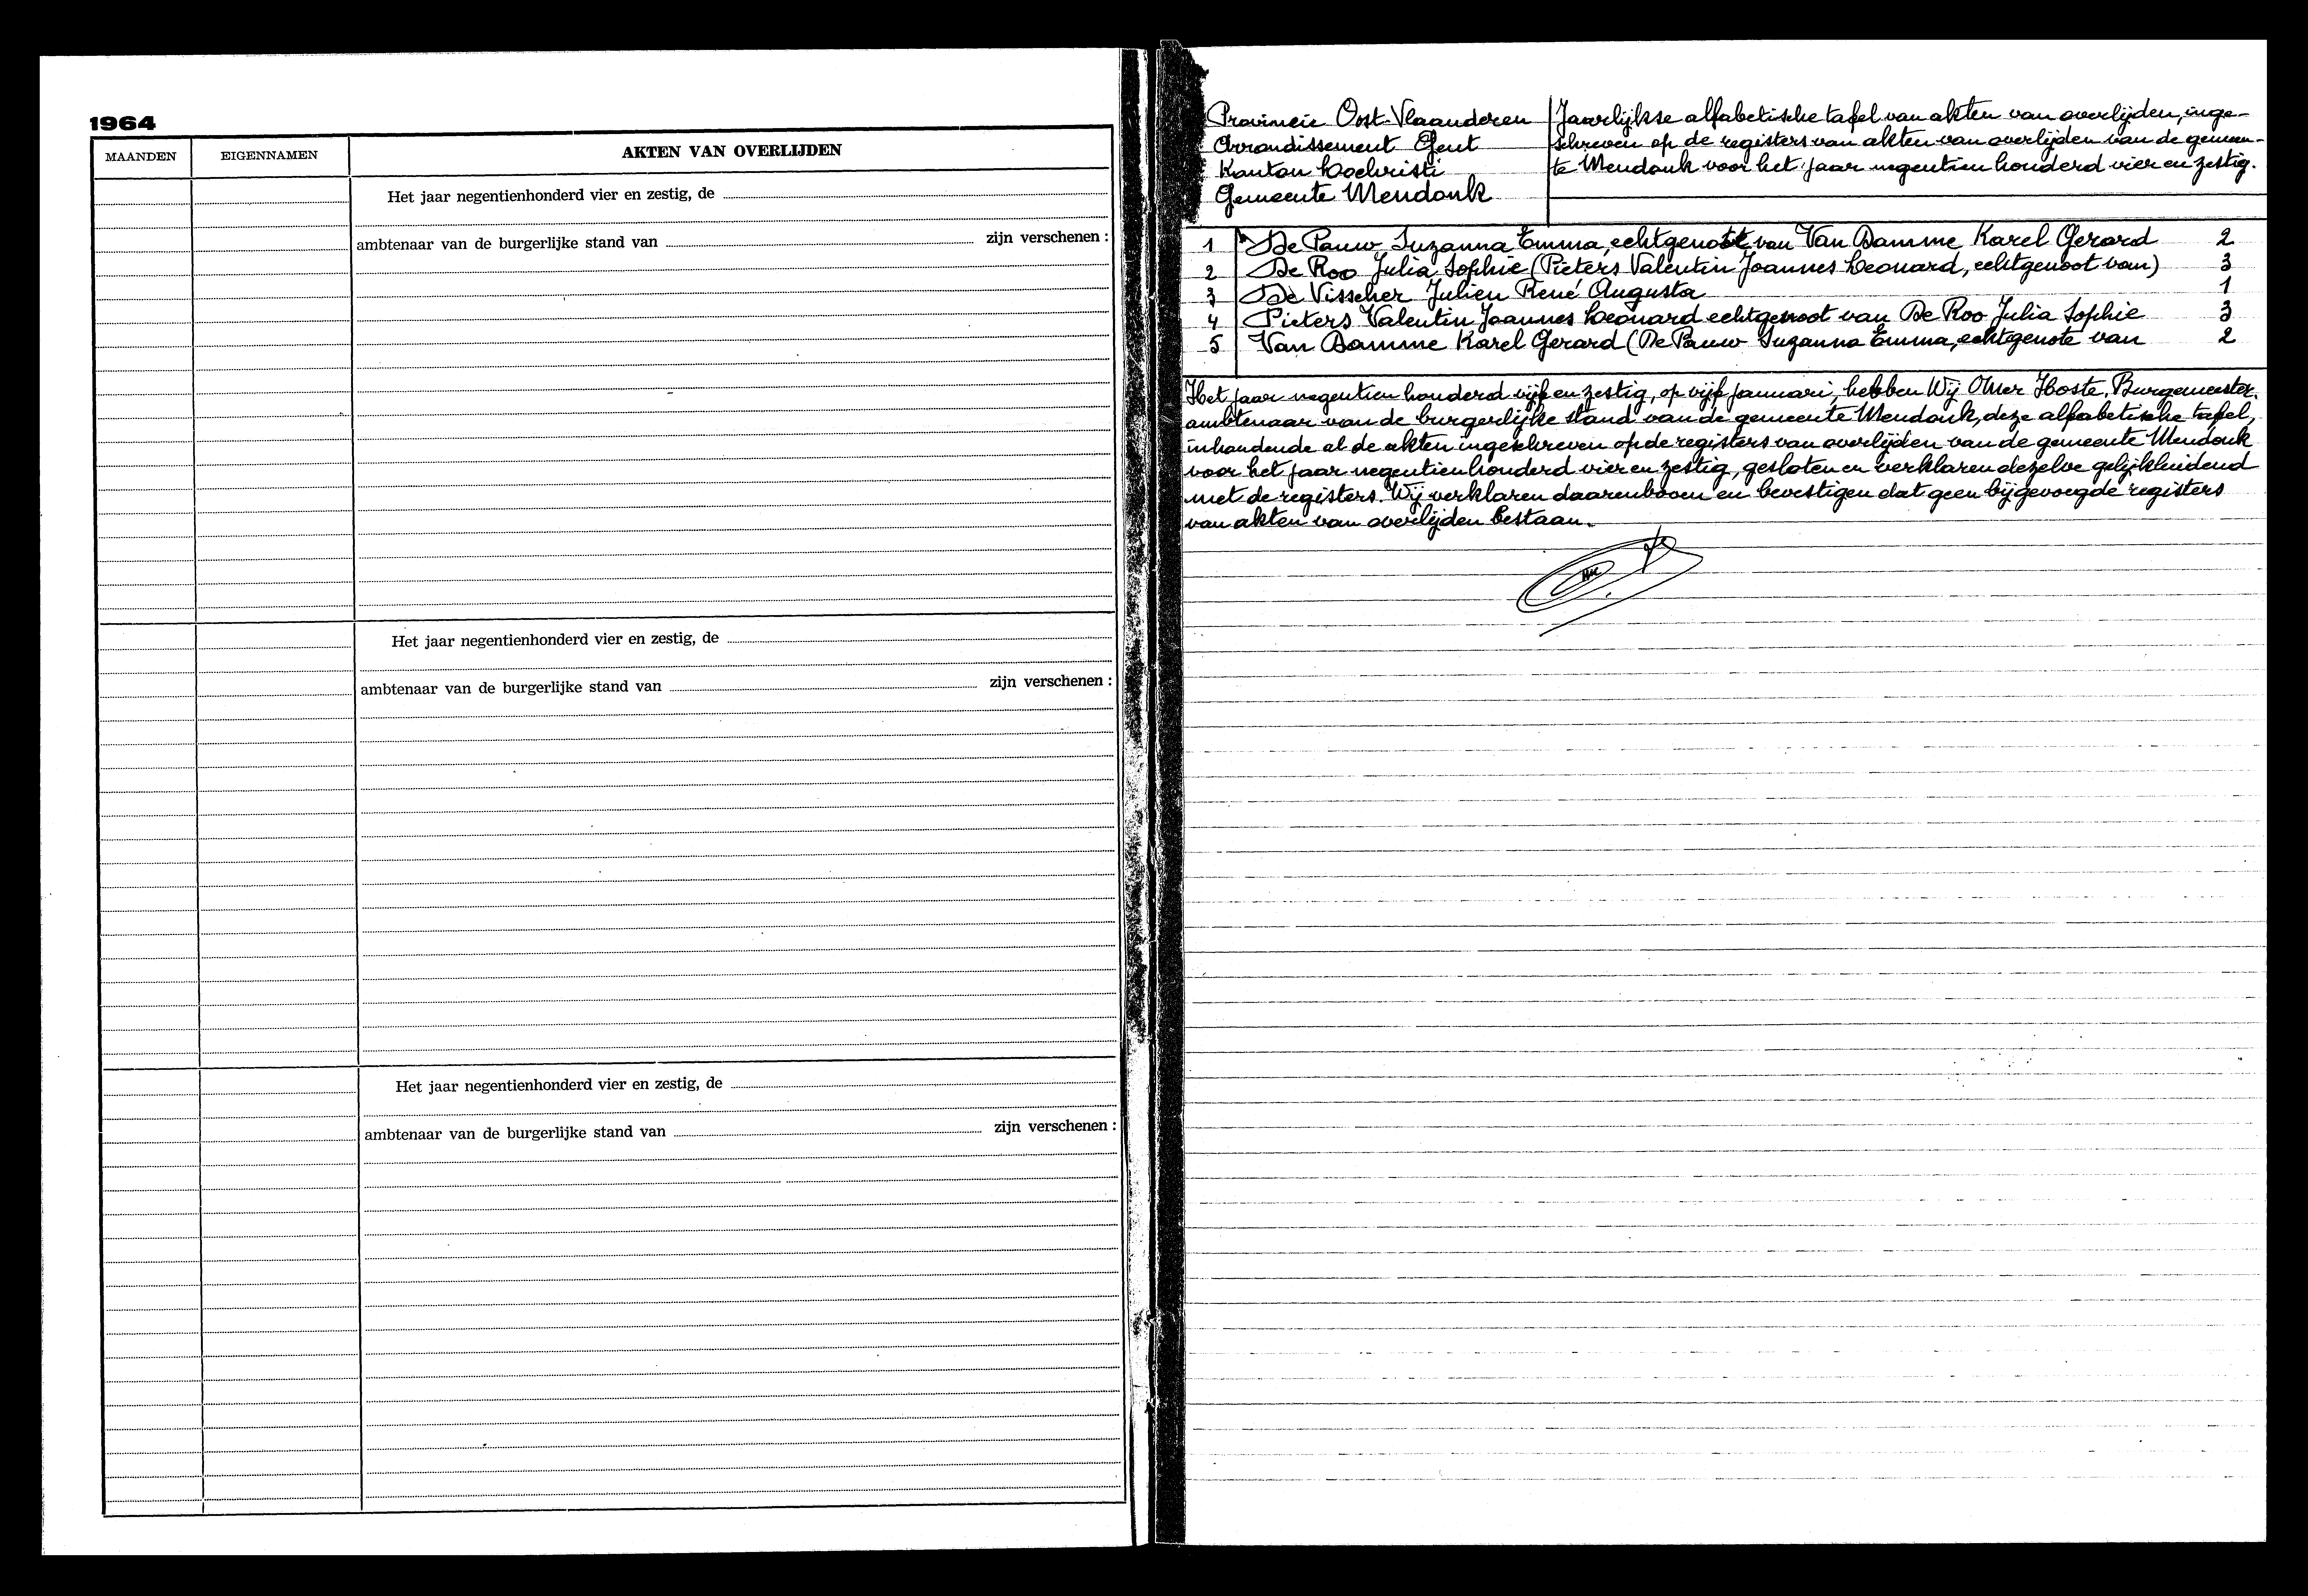 1964
MAANDEN EIGENNAMEN AKTEN VAN OVERLIJDEN
Het jaar negentienhonderd vier en zestig, de
ambtenaar van de burgerlijke stand van zijn verschenen :
Het jaar negentienhonderd vier en zestig, de
ambtenaar van de burgerlijke stand van zijn verschenen :
Het jaar negentienhonderd vier en zestig, de
ambtenaar van de burgerlijke stand van zijn verschenen :
Provincie Oost-Vlaanderen
Arrondissement Gent
Kanton Lochristi
Gemeente Mendonk
Jaarlijkse alfabetische tafel van akten van overlijden, inge-
schreven op de registers van akten van overlijden van de gemeen-
te Mendonk voor het jaar negentien honderd vier en zestig.
1 De Pauw Suzanna Emma, echtgenote van Van Damme Karel Gerard 2
2 De Roo Julia Sophie (Pieters Valentin Joannes Leonard, echtgenoot van) 3
3 De Visscher Julien René Augusta 1
4 Pieters Valentin Joannes Leonard echtgenoot van De Roo Julia Sophie 3
5 Van Damme Karel Gerard (De Pauw Suzanna Emma, echtgenote van 2
Het jaar negentien honderd vijf en zestig, op vijf januari, hebben Wij Omer Hoste, Burgemeester,
ambtenaar van de burgerlijke stand van de gemeente Mendonk, deze alfabetische tafel,
inhoudende al de akten ingeschreven op de registers van overlijden van de gemeente Mendonk
voor het jaar negentienhonderd vier en zestig, gesloten en verklaren dezelve gelijkluidend
met de registers. Wij verklaren daarenboven en bevestigen dat geen bijgevoegde registers
van akten van overlijden bestaan.